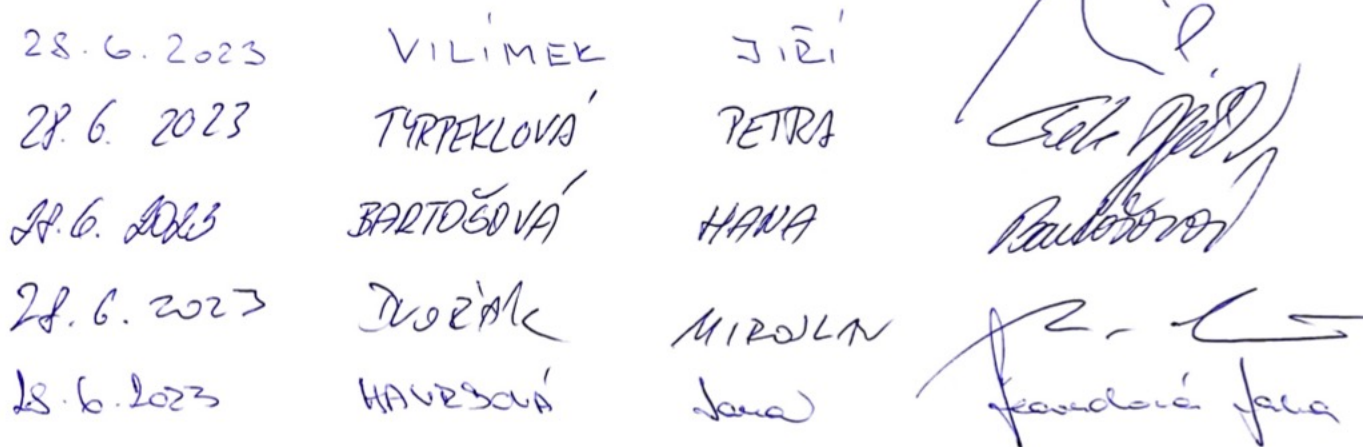 28.6.2023 VILÍMEK JIŘÍ
28.6. 2023 TYRPEKLOVÁ PETRA
28.6. 2023 BARTOŠOVÁ HANA Bartošová
28.6.2023 DVOŘÁK MIROSLAV
28.6.2023 Jana